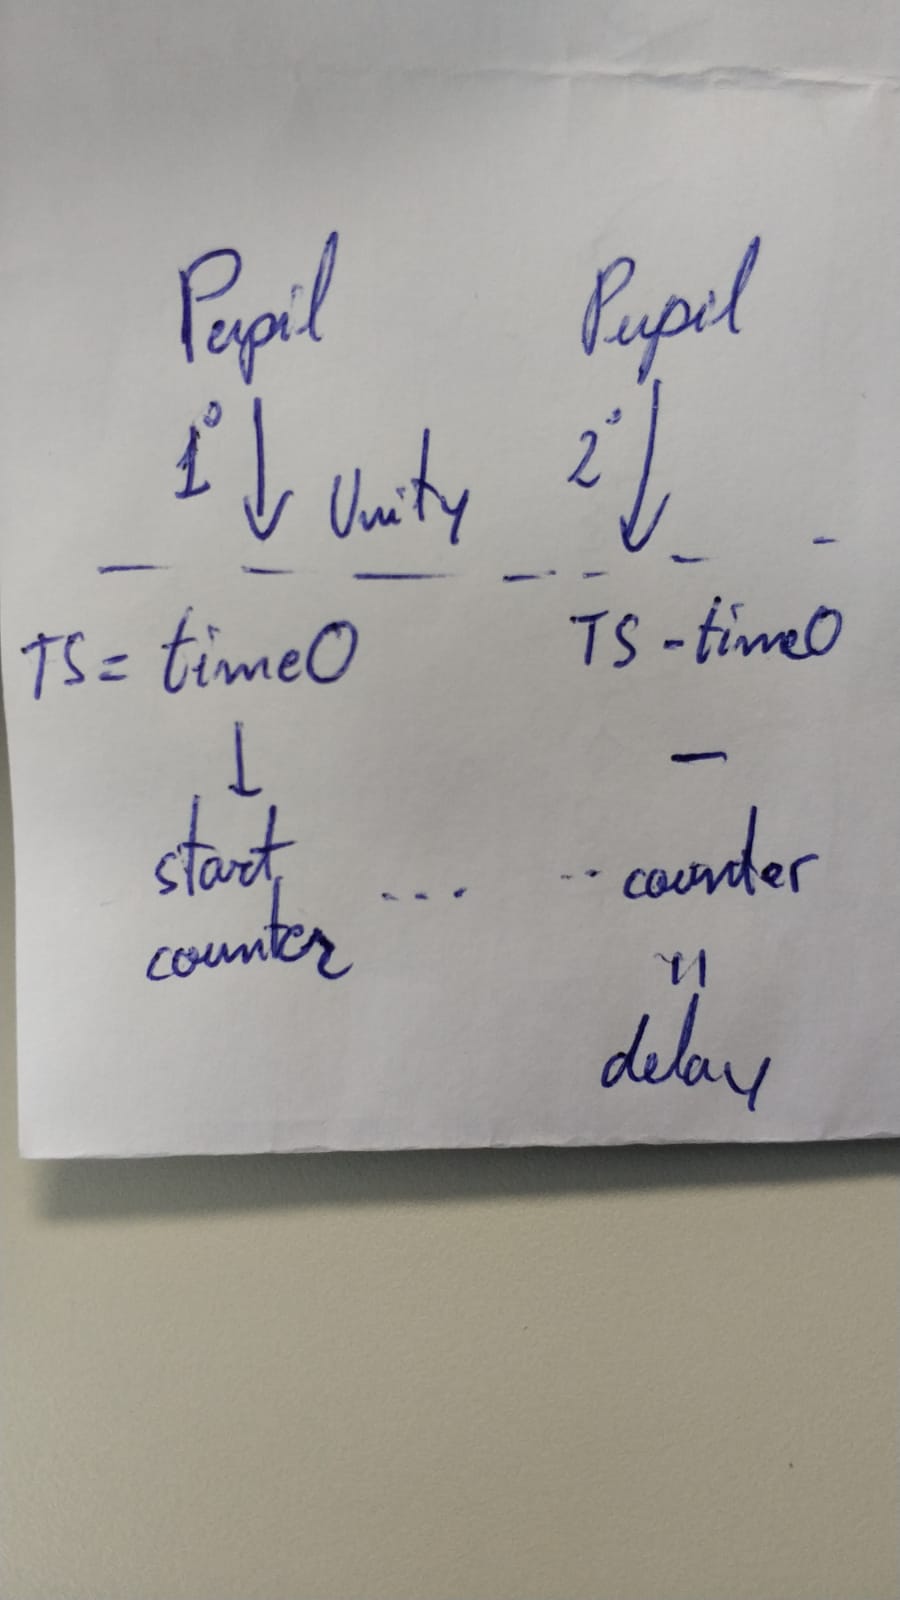 Pupil Pupil
1° 2°
Unity
TS = time0 TS - time0
start
counter ... .. counter
=
delay